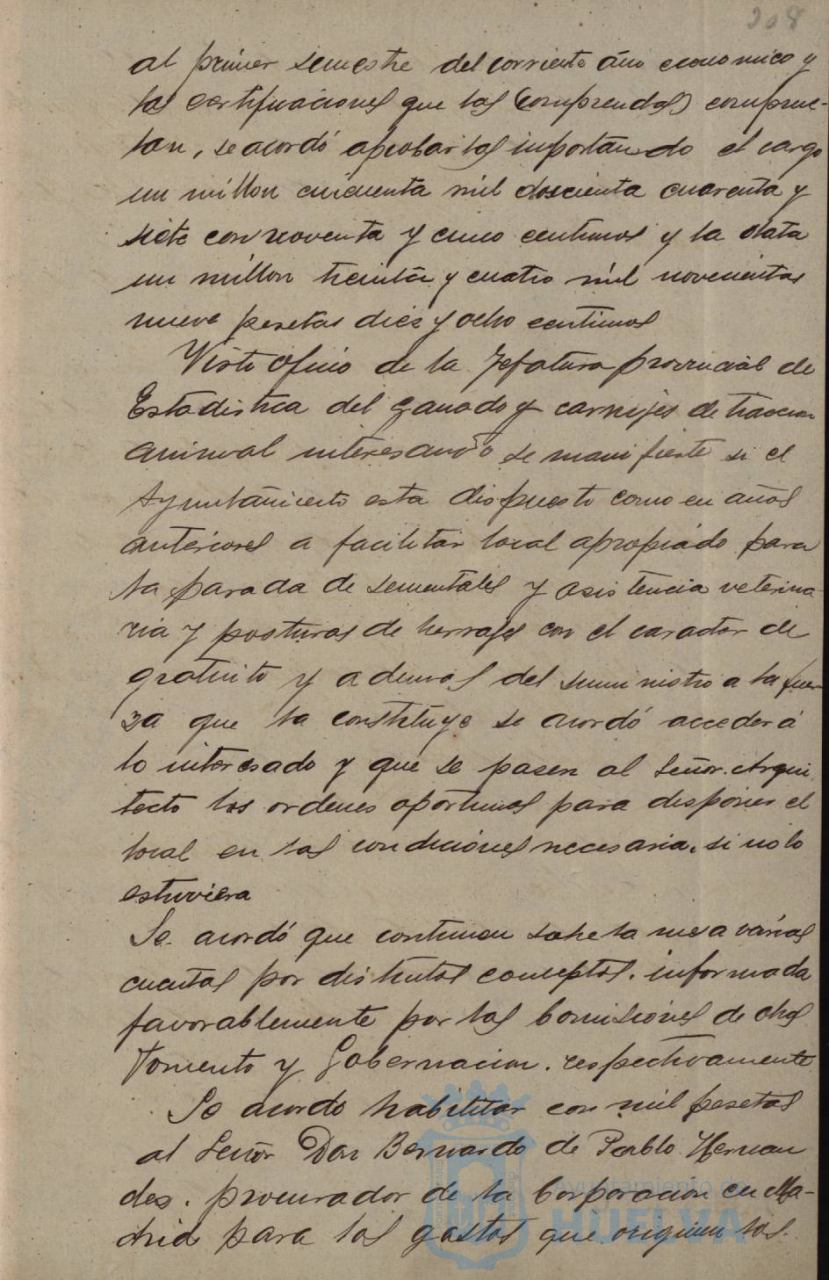 208
al primer semestre del corriente año economico y
las certificaciones que las comprendas) comprue-
tan, se acordó aprobarlas importando el cargo
un millon cincuenta mil doscienta cuarenta y
siete con noventa y cinco centimos y la data
un millon treinta y cuatro mil novecientas
nueve pesetas diez y ocho centimos
Visto oficio de la Jefatura provincial de
Estadistica del ganado y carruajes de traccion
animal interesando se manifieste si el
Ayuntamiento esta dispuesto como en años
anteriores a facilitar local apropiado para
la parada de sementales y asistencia veterina-
ria y posturas de herrajes con el caracter de
gratuito y ademas del suministro a la fuer-
za que la constituye se acordó acceder á
lo interesado y que se pasen al Señor Arqui-
tecto las ordenes oportunas para disponer el
local en las condiciones necesaria, si no lo
estuviera
Se acordó que continuen sobre la mesa varias
cuentas por distintos conceptos, informada
favorablemente por las Comisiones de
Fomento y Gobernacion, respectivamente
Se acordo habilitar con mil pesetas
al Señor Don Bernardo de Pablo Hernan
des, procurador de la Corporacion en Ma-
drid para los gastos que originen los
Ayuntamiento de
HUELVA